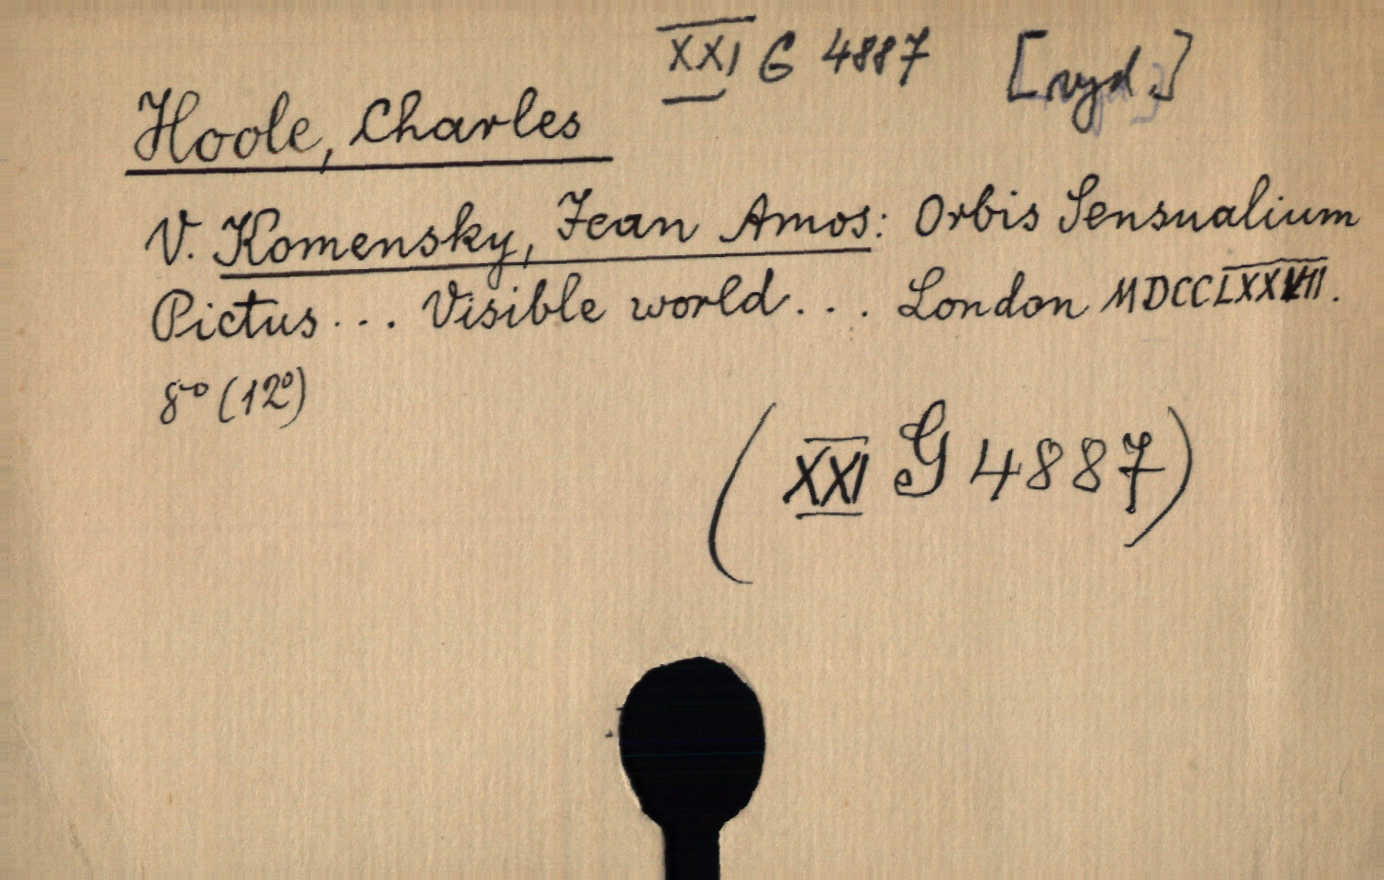 XXI G 4887 [vyd.]
Hoole, Charles
V. Komensky, Jean Amos: Orbis Sensualium
Pictus... Visible world... London MDCCLXXVII.
8° (12°)
(XXI G 4887)